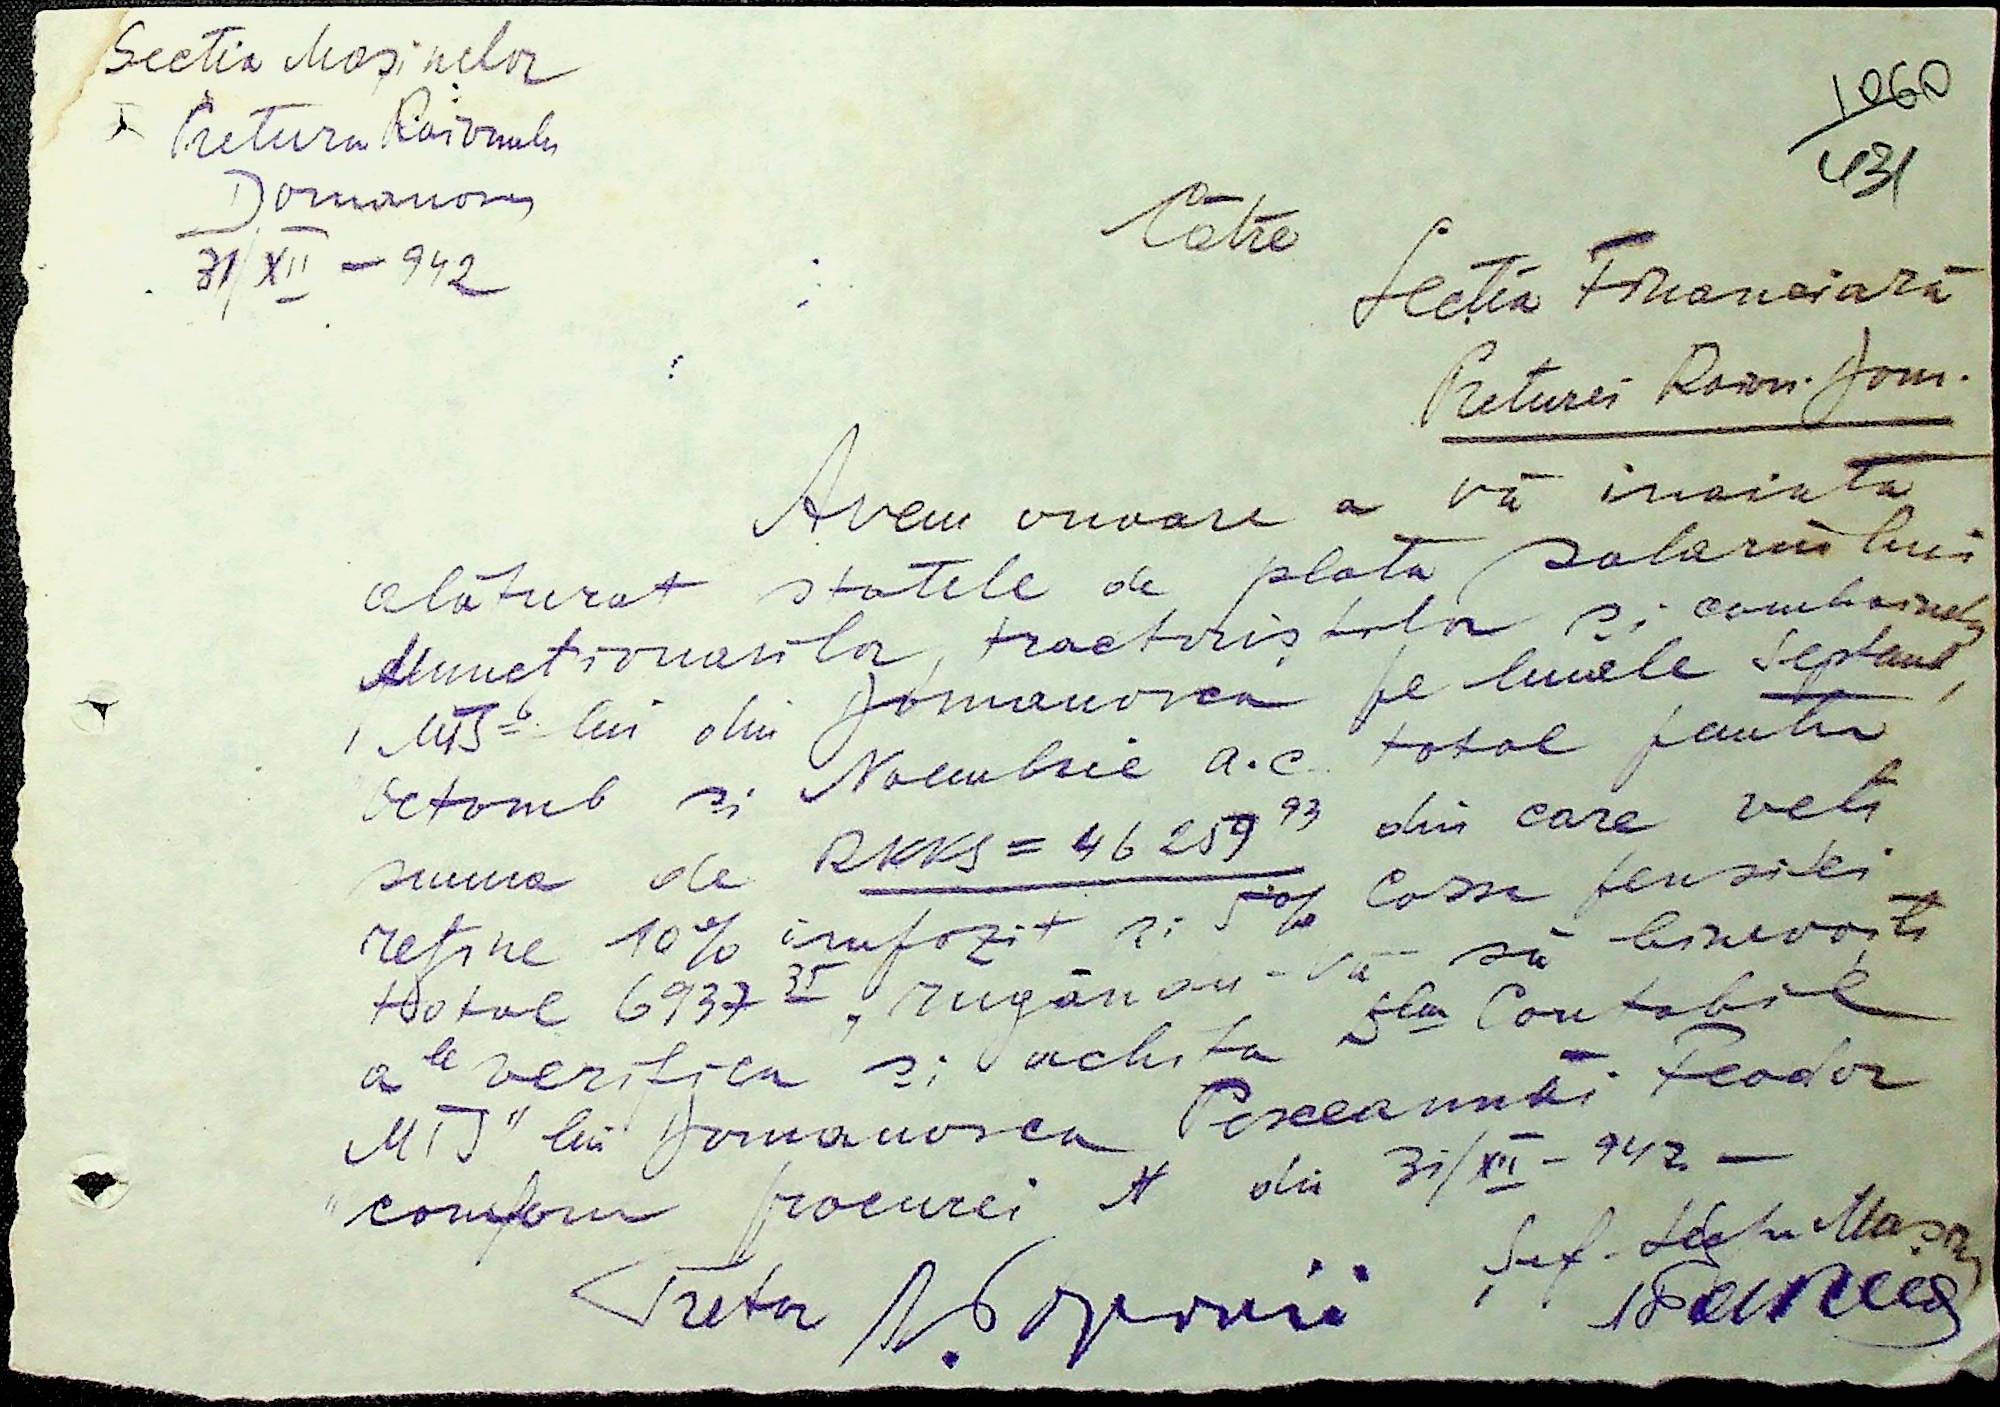 Sectia Mașinelor
Pretura Raionului
Domanovca
31/XII – 942
1060
431
Către
Secția Financiară
Preturei Raion. Dom.
Avem onoare a vă inainta
alăturat statele de plata salariului
funcționarilor, tractoriștilor și combainelor
MTS lui din Domanovca pe lunele Septemb,
Octomb si Noembrie a.c. total pentru
suma de RKKS = 46259 93 din care veti
reține 10% impozit și 5% Casa pensiei
total 6937 35, rugându-vă să binevoiți
a le verifica și achita Contabil
MTS" lui Domanovca Feodor
conform procurei N din 31/XII – 942 –
Șef. Secției Mașin
Pretor